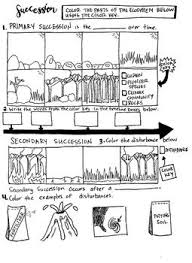 Succession
COLOR THE PARTS OF THE ECOSYSTEM BELOW
USING THE COLOR KEY.
1. PRIMARY SUCCESSION IS THE ________ over time.
GRASSES
PIONEER
SPECIES
CLIMAX
COMMUNITY
ROCKS
2. Write the words from the color key in the timeline boxes below.
SECONDARY SUCCESSION 3. Color the disturbance below
COLOR
KEY
Secondary Succession occurs after a
4. Color the examples of disturbances.
DRYING
SOIL